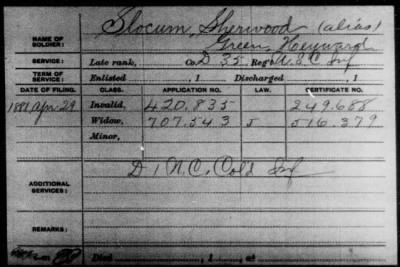 Slocum, Sherwood (alias)
NAME OF SOLDIER: Green, Heyward
SERVICE: Late rank, Co. D 35 Reg't U.S.C. Inf
TERM OF SERVICE: Enlisted , 1 Discharged , 1
DATE OF FILING. CLASS. APPLICATION NO. LAW. CERTIFICATE NO.
1881 Apr. 29 Invalid, 420.835 249.688
Widow, 707.543 J 516.379
Minor,
ADDITIONAL SERVICES: D 1 N.C. Cold Inf
REMARKS:
Died , 1 , at